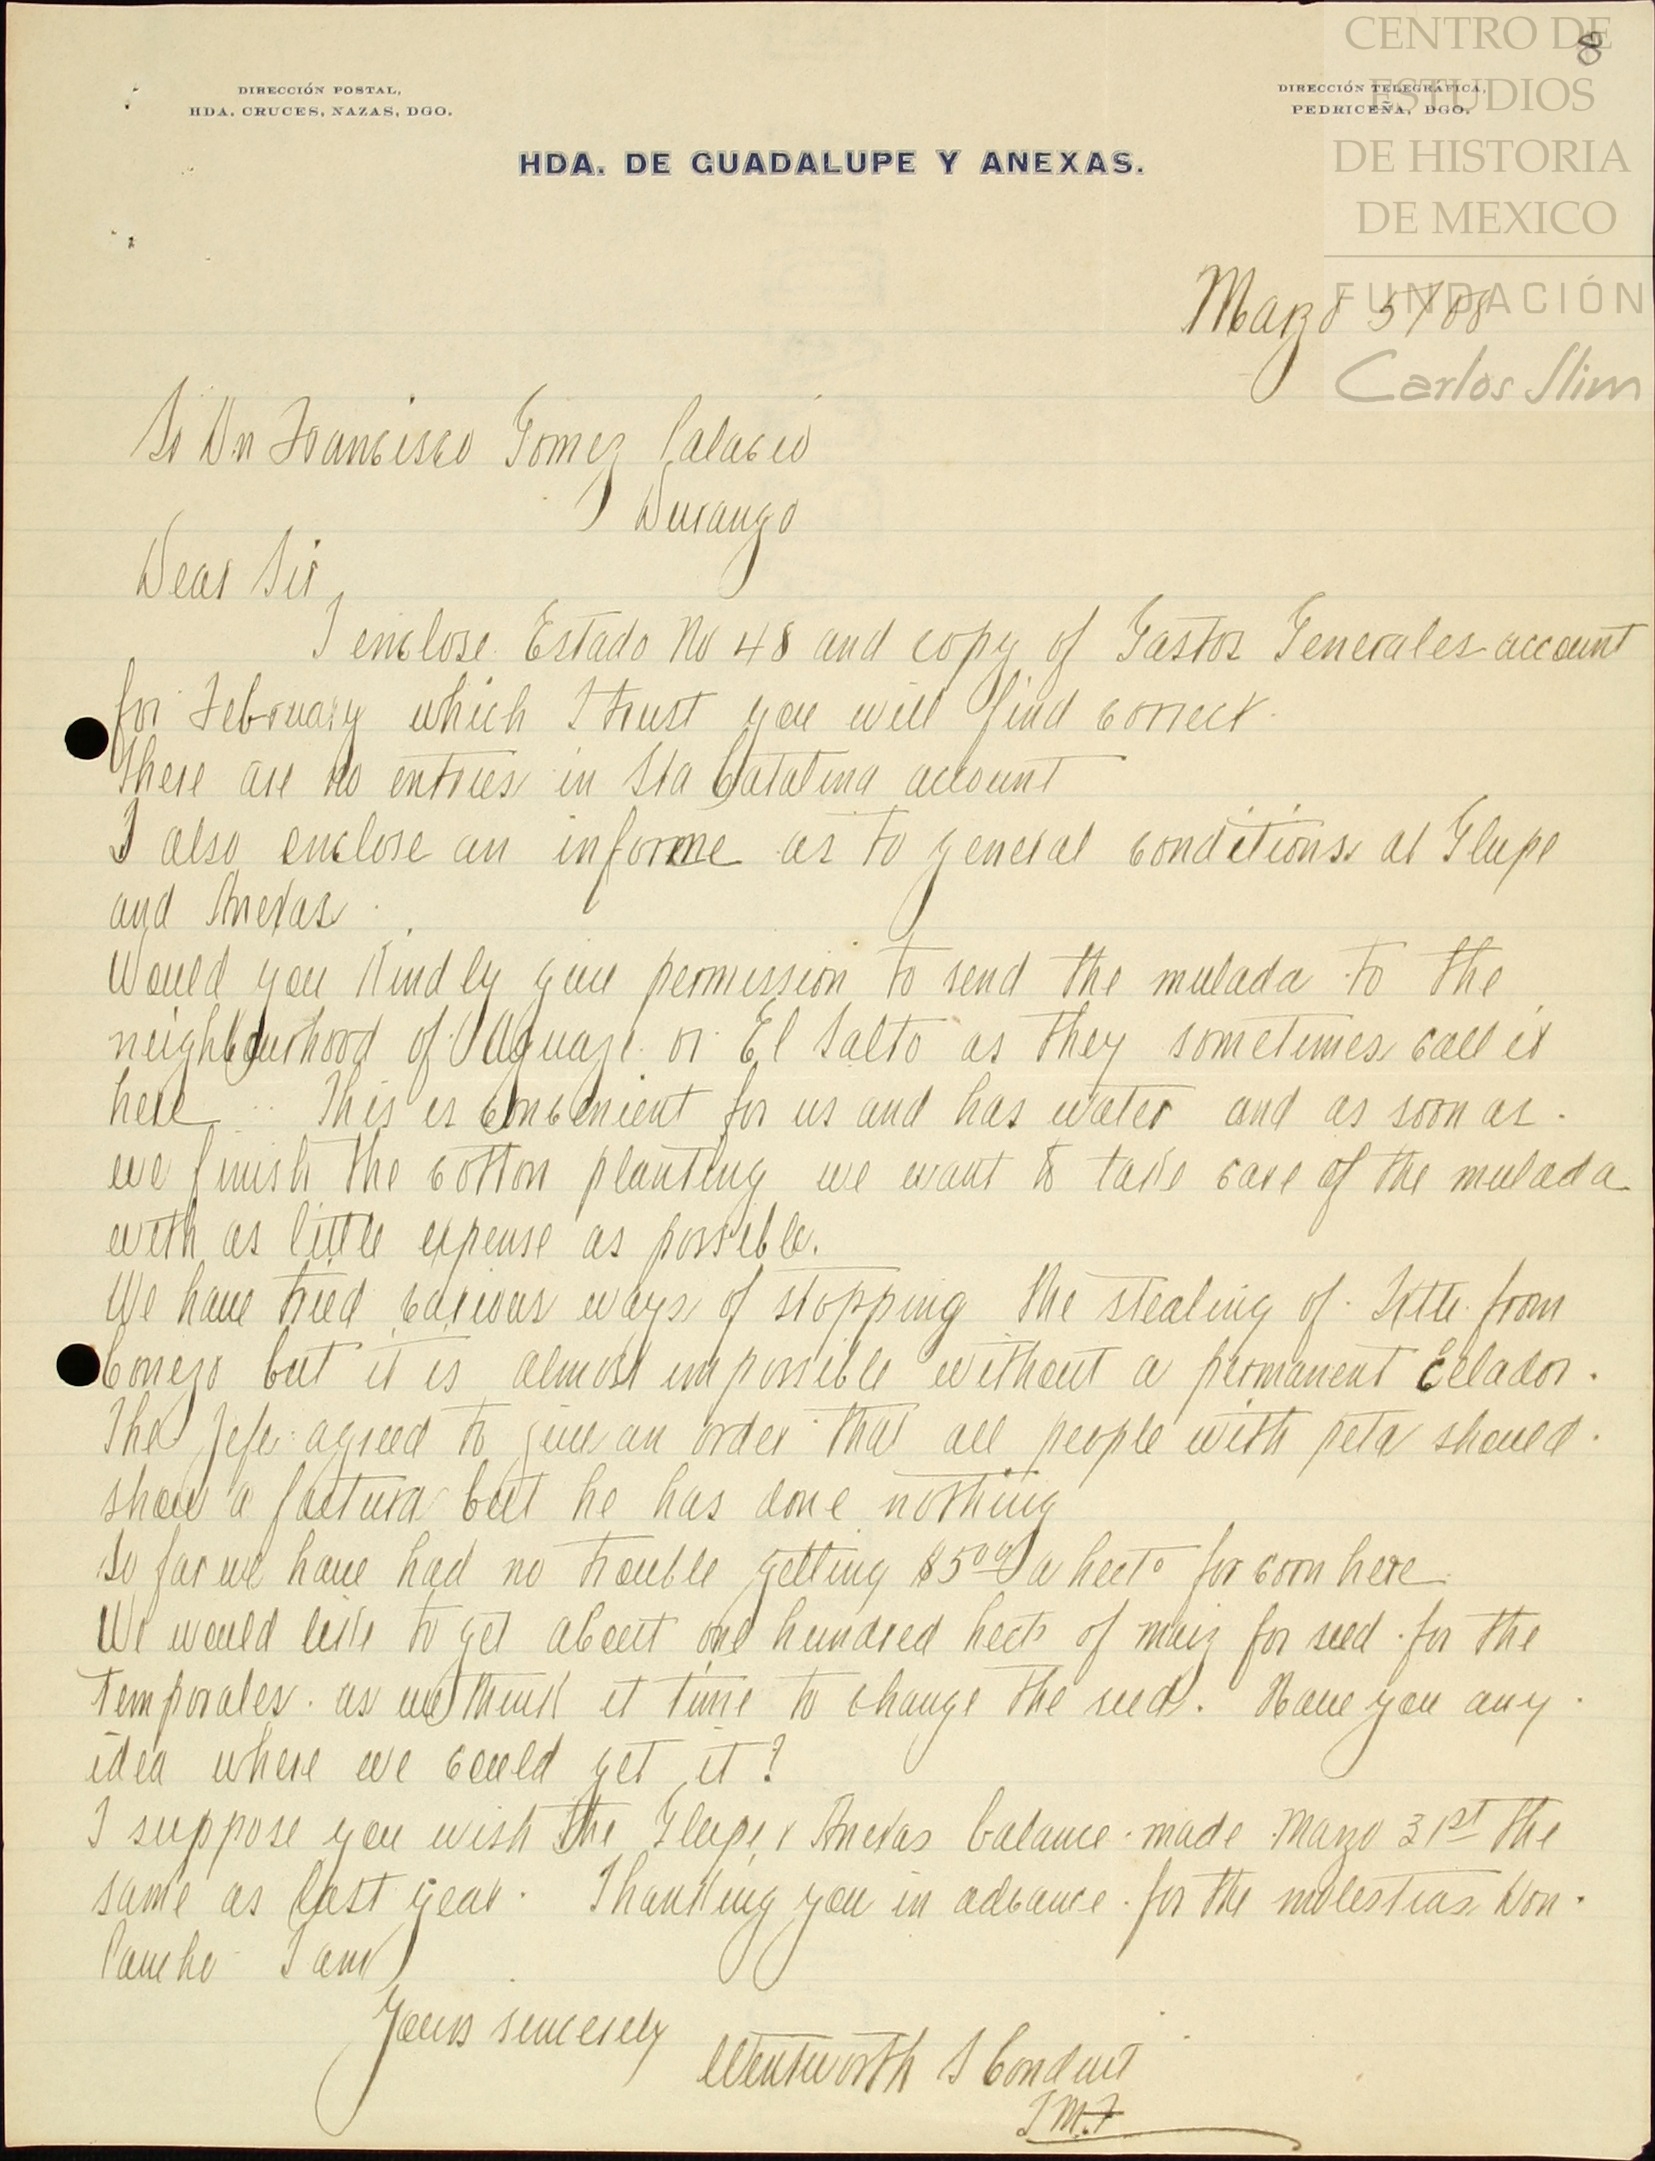 CENTRO DE
ESTUDIOS
DE HISTORIA
DE MEXICO
FUNDACIÓN
Carlos Slim
8
DIRECCIÓN POSTAL,
HDA. CRUCES, NAZAS, DGO.
DIRECCIÓN TELEGRÁFICA,
PEDRICEÑA, DGO.
HDA. DE GUADALUPE Y ANEXAS.
Marzo 5/08
Sr Dn Francisco Gomez Palacio
Durango
Dear Sir
I enclose Estado No 48 and copy of Gastos Generales account
for February which I trust you will find correct.
There are no entries in Sta Catalina account
I also enclose an informe as to general conditions at Glupe
and Anexas.
Would you kindly give permission to send the mulada to the
neighbourhood of Aguaje or El Salto as they sometimes call it
here. This is convenient for us and has water and as soon as
we finish the cotton planting we want to take care of the mulada
with as little expense as possible.
We have tried various ways of stopping the stealing of from
but it is almost impossible without a permanent celador.
The Jefe agreed to give an order that all people with should
show a factura but he has done nothing
So far we have had no trouble getting $5.00 a hecto for corn here
We would like to get about one hundred hects of maiz for seed for the
temporales as we think it time to change the seed. Have you any
idea where we could get it?
I suppose you wish the Glupe y Anexas balance made Marzo 31st the
same as last year. Thanking you in advance for the molestias Don
Pancho I am
Yours sincerely
Wentworth S Conduit